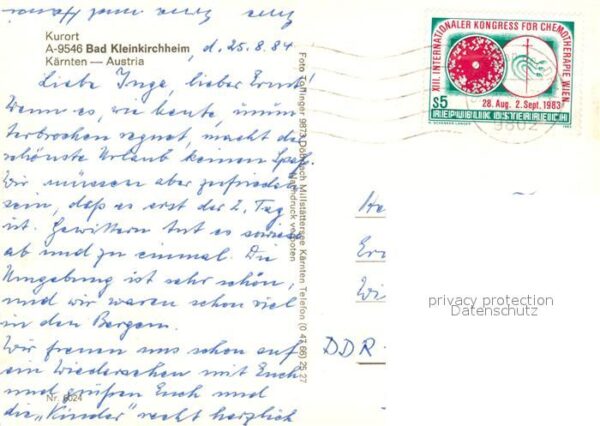 Kurort
A-9546 Bad Kleinkirchheim, d. 25.8.84
Kärnten — Austria
Liebe Inge, lieber Ernst!
Wenn es, wie heute, unun-
terbrochen regnet, macht der
schönste Urlaub keinen Spaß.
Wir müssen aber zufrieden
sein, daß es erst der 2. Tag
ist. Gewittern tut es sowieso
ab und zu einmal. Die
Umgebung ist sehr schön,
und wir waren schon viel
in den Bergen.
Wir freuen uns schon auf
ein Wiedersehen mit Euch
und grüßen Euch und
die „Kinder" recht herzlich
Nr. 6024
Eure und Hanna
Foto Tollinger 9873 Döbriach Millstättersee Kärnten Telefon (0 47 66) 26 27
Nachdruck verboten
XIII. INTERNATIONALER KONGRESS FÜR CHEMOTHERAPIE WIEN
28. Aug. 2. Sept. 1983
S5
REPUBLIK ÖSTERREICH
He
Wi
DDR-
privacy protection
Datenschutz